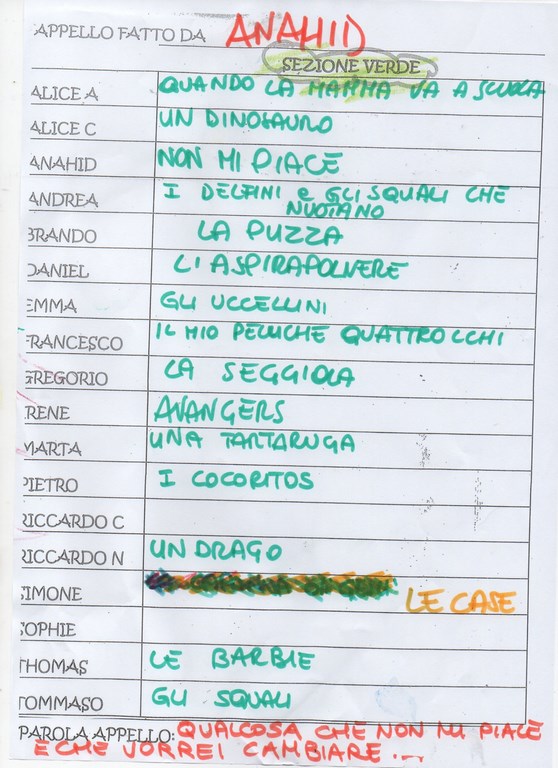 APPELLO FATTO DA ANAHID
SEZIONE VERDE
ALICE A QUANDO LA MAMMA VA A SCUOLA
ALICE C UN DINOSAURO
ANAHID NON MI PIACE
ANDREA I DELFINI e GLI SQUALI CHE
NUOTANO
BRANDO LA PUZZA
DANIEL L'ASPIRAPOLVERE
EMMA GLI UCCELLINI
FRANCESCO IL MIO PELUCHE QUATTROCCHI
GREGORIO LA SEGGIOLA
IRENE AVANGERS
MARTA UNA TARTARUGA
PIETRO I COCORITOS
RICCARDO C
RICCARDO N UN DRAGO
SIMONE LE CASE
SOPHIE
THOMAS LE BARBIE
TOMMASO GLI SQUALI
PAROLA APPELLO: QUALCOSA CHE NON MI PIACE
E CHE VORREI CAMBIARE...